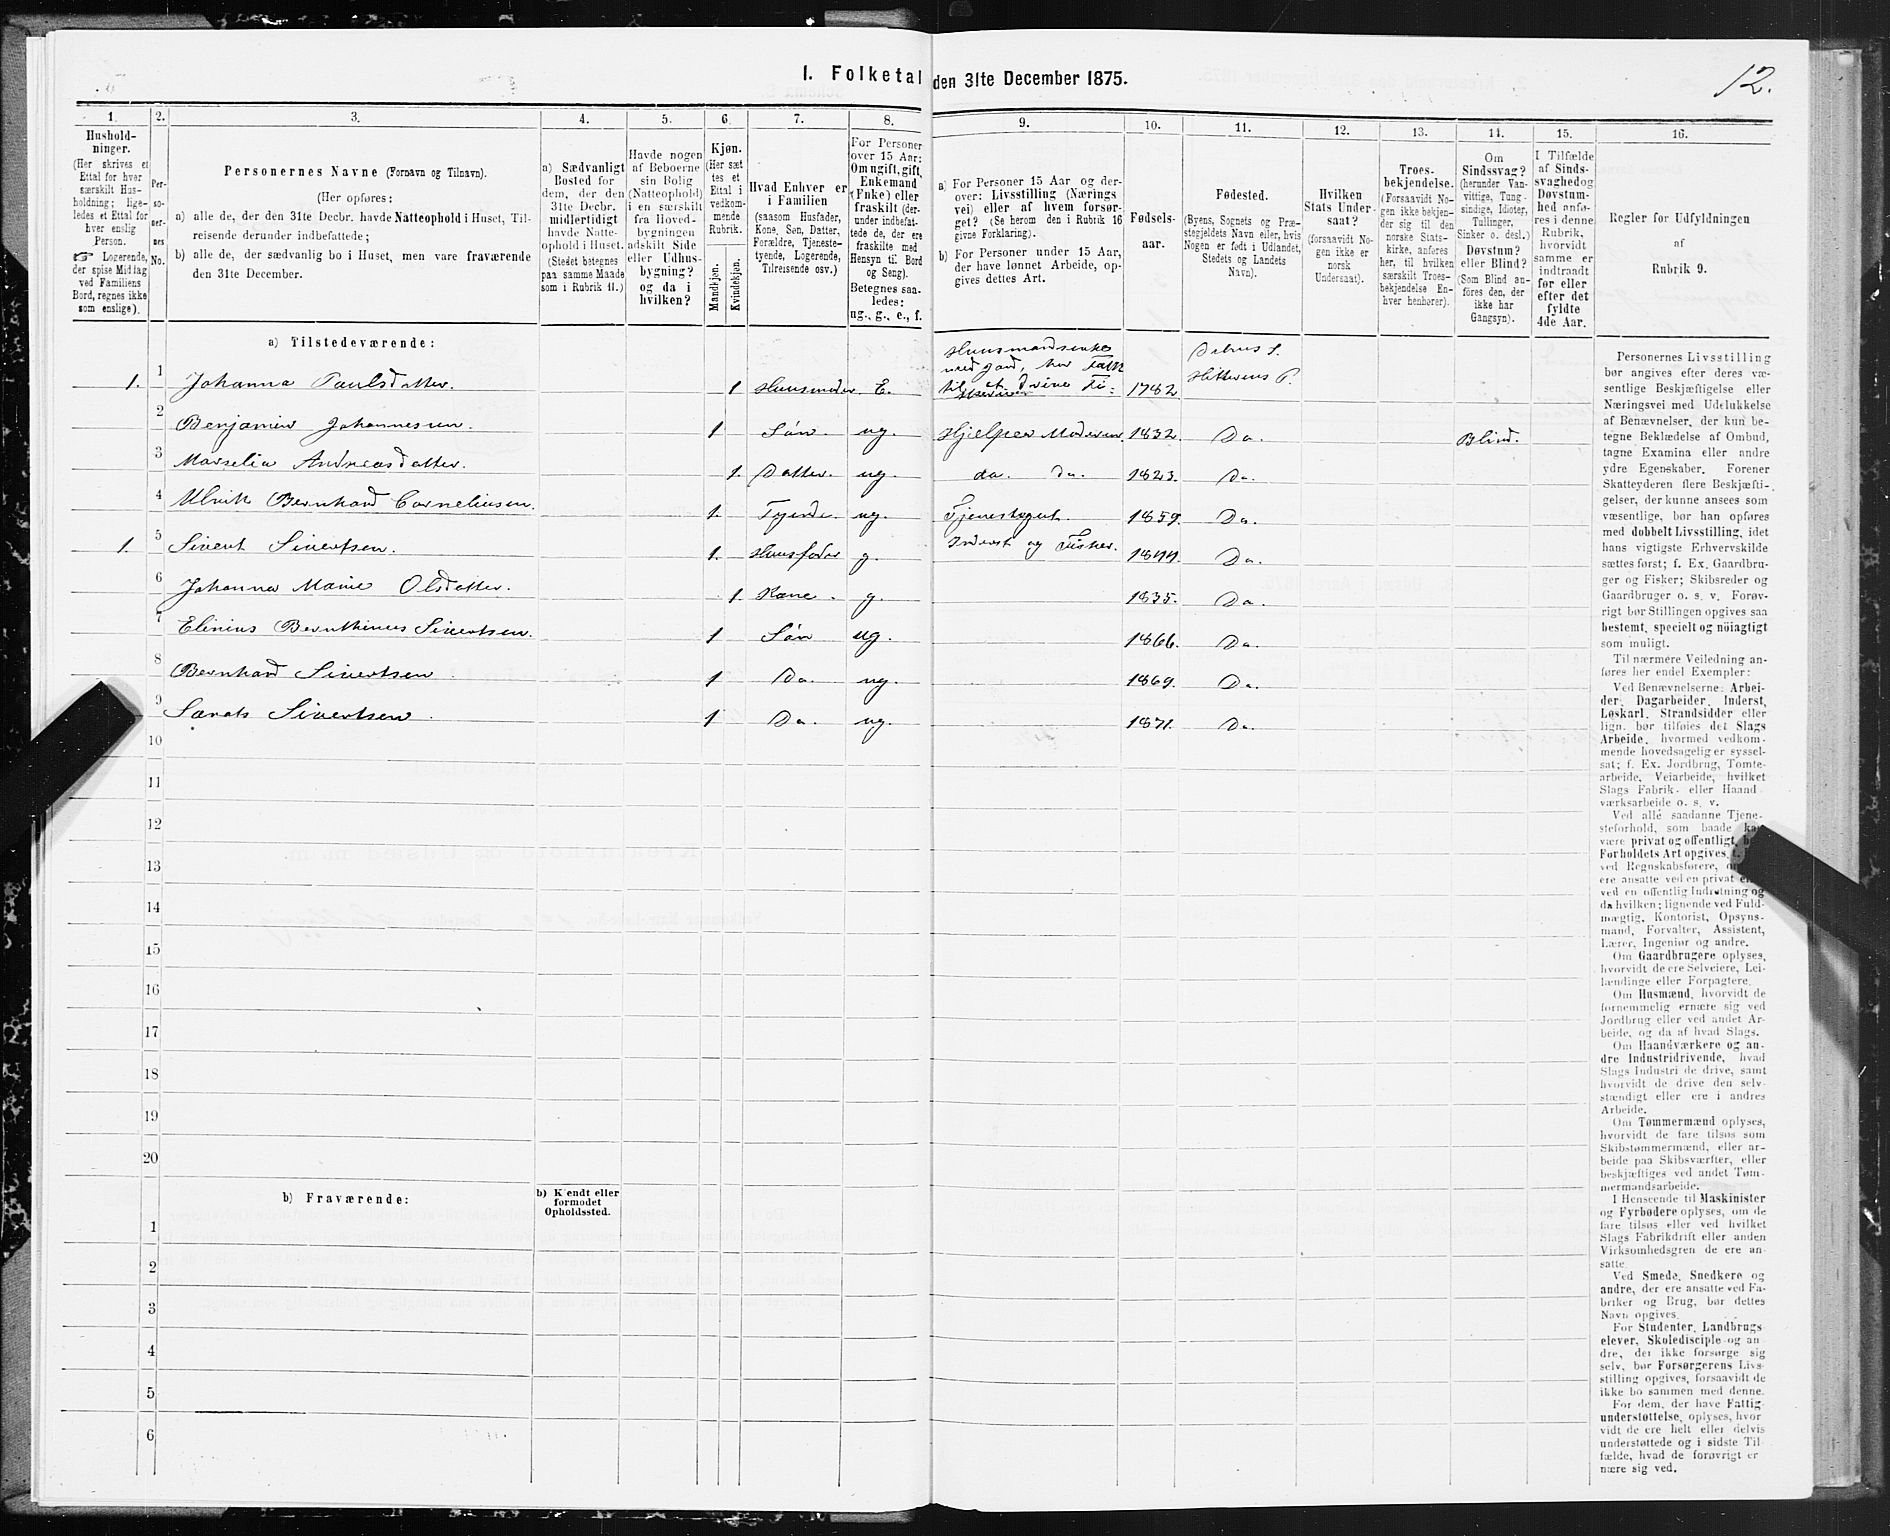 12.
I. Folketal den 31te December 1875.
1.
Hushold-
ninger.
(Her skrives et
Ettal for hver
særskilt Hus-
holdning; lige-
ledes et Ettal for
hver enslig
Person.
☞ Logerende,
der spise Middag
ved Familiens
Bord, regnes ikke
som enslige).
2.
Per-
so-
ner-
nes
No.
3.
Personernes Navne (Fornavn og Tilnavn).
(Her opføres:
a) alle de, der den 31te Decbr. havde Natteophold i Huset, Til-
reisende derunder indbefattede;
b) alle de, der sædvanlig bo i Huset, men vare fraværende
den 31te December.
4.
a) Sædvanligt
Bosted for
dem, der den
31te Decbr.
midlertidigt
havde Natte-
ophold i Huset.
(Stedet betegnes
paa samme Maade
som i Rubrik 11.)
5.
Havde nogen
af Beboerne
sin Bolig
(Natteophold)
i en særskilt
fra Hoved-
bygningen
adskilt Side
eller Udhus-
bygning?
og da i
hvilken?
6.
Kjøn.
(Her sæt
tes et
Ettal i
vedkom-
mende
Rubrik.
Mandkjøn.
Kvindekjøn.
7.
Hvad Enhver er
i Familien
(saasom Husfader,
Kone, Søn, Datter,
Forældre, Tjeneste-
tyende, Logerende,
Tilreisende osv.)
8.
For Personer
over 15 Aar:
Om ugift, gift,
Enkemand
(Enke) eller
fraskilt (der-
under indbefat-
tede de, der ere
fraskilte med
Hensyn til Bord
og Seng).
Betegnes saa-
ledes:
ug., g., e., f.
9.
a) For Personer 15 Aar og der-
over: Livsstilling (Nærings
vei) eller af hvem forsør-
get? (Se herom den i Rubrik 16
givne Forklaring).
b) For Personer under 15 Aar,
der have lønnet Arbeide, op-
gives dettes Art.
10.
Fødsels-
aar.
11.
Fødested.
(Byens, Sognets og Præ-
stegjeldets Navn eller, hvis
Nogen er født i Udlandet,
Stedets og Landets
Navn).
12.
Hvilken
Stats Under-
saat?
(forsaavidt No-
gen ikke er
norsk
Undersaat).
13.
Troes-
bekjendelse.
(Forsaavidt No-
gen ikke bekjen-
der sig til den
norske Stats-
kirke, anføres
her, til hvilken
særskilt Troes-
bekjendelse En-
hver henhører).
14.
Om
Sindssvag?
(herunder Van-
vittige, Tung-
sindige, Idioter,
Tullinger,
Sinker o. desl.)
Døvstum?
eller Blind?
(Som Blind an-
føres den, der
ikke har
Gangsyn).
15.
I Tilfælde
af Sinds-
svaghed og
Døvstum-
hed anfø-
res i denne
Rubrik,
hvorvidt
samme er
indtraadt
før eller
efter det
fyldte
4de Aar.
16.
Regler for Udfyldningen
af
Rubrik 9.
a) Tilstedeværende:
1. 1 Johanna Paulsdatter. 1 Huusmoder. E. til at drive Fi- 1782 Hitterens P.
2 Benjamin Johannessen. 1 Søn. ug. Hjelper Moderen. 1832. Do. Blind.
3 Marselia Andreasdatter. 1. Datter. ug. do. do. 1823. Do.
4 Ulrik Bernhard Corneliusen. 1. Tyende. ug. Tjenestegut. 1859. Do.
1. 5 Sivert Sivertsen. 1. Huusfader g. Inderst og Fisker. 1844. Do.
6 Johanna Marie Olsdatter. 1. Kone. g. 1835. Do.
7 Elinius Bernthinus Sivertsen. 1 Søn ug. 1866. Do.
8 Bernhard Sivertsen. 1 Do. ug. 1869. Do.
9 Sivertsen. 1 Do. ug. 1871. Do.
10
11
12
13
14
15
16
17
18
19
20
b) Fraværende:
b) Kjendt eller
formodet
Opholdssted.
1
2
3
4
5
6
Personernes Livsstilling
bør angives efter deres væ-
sentlige Beskjæftigelse eller
Næringsvei med Udelukkelse
af Benævnelser, der kun be-
tegne Beklædelse af Ombud,
tagne Examina eller andre
ydre Egenskaber. Forener
Skatteyderen flere Beskjæfti-
gelser, der kunne ansees som
væsentlige, bør han opføres
med dobbelt Livsstilling, idet
hans vigtigste Erhvervskilde
sættes først; f. Ex. Gaardbru-
ger og Fisker; Skibsreder og
Gaardbruger o. s. v. Forøv-
rigt bør Stillingen opgives saa
bestemt, specielt og nöiagtigt
som muligt.
Til nærmere Veiledning an-
føres her endel Exempler:
Ved Benævnelserne: Arbei-
der, Dagarbeider, Inderst,
Løskarl, Strandsidder eller
lign. bør tilføies det Slags
Arbeide, hvormed vedkom-
mende hovedsagelig er syssel-
sat; f. Ex. Jordbrug, Tomte-
arbeide, Veiarbeide, hvilket
Slags Fabrik- eller Haand
værksarbeide o. s. v.
Ved alle saadanne Tjene-
steforhold, som baade
være privat og offentligt,
Forholdets Art opgives,
ved Regnskabsførere,
ere ansatte ved en privat
ved en offentlig Indretning og
da hvilken; lignende ved Fuld-
mægtig, Kontorist, Opsyns-
mand, Forvalter, Assistent,
Lærer, Ingeniør og andre.
Om Gaardbrugere oplyses,
hvorvidt de ere Selveiere, Lei-
lændinge eller Forpagtere.
Om Husmænd, hvorvidt de
fornemmelig ernære sig ved
Jordbrug eller ved andet Ar-
beide, og da af hvad Slags.
Om Haandværkere og an-
dre Industridrivende, hvad
Slags Industri de drive, samt
hvorvidt de drive den selv-
stændigt eller ere i andres
Arbeide.
Om Tømmermænd oplyses,
hvorvidt de fare tilsøs som
Skibstømmermænd, eller ar-
beide paa Skibsværfter, eller
beskjæftiges ved andet Tøm-
mermandsarbeide.
I Henseende til Maskinister
og Fyrbødere oplyses, om de
fare tilsøs eller ved hvilket
Slags Fabrikdrift eller anden
Virksomhedsgren de ere an-
satte.
Ved Smede, Snedkere og
andre, der ere ansatte ved Fa-
briker og Brug, bør dettes
Navn opgives.
For Studenter, Landbrugs
elever, Skoledisciple og an
dre, der ikke forsørge sig
selv, bør Forsørgerens Livs-
stilling opgives, forsaavidt de
ikke bo sammen med denne.
For dem, der have Fattig
understøttelse, oplyses, hvor
vidt de ere helt eller delvis
understøttede og i sidste Til-
fælde, hvad de forøvrigt er
nære sig ved.